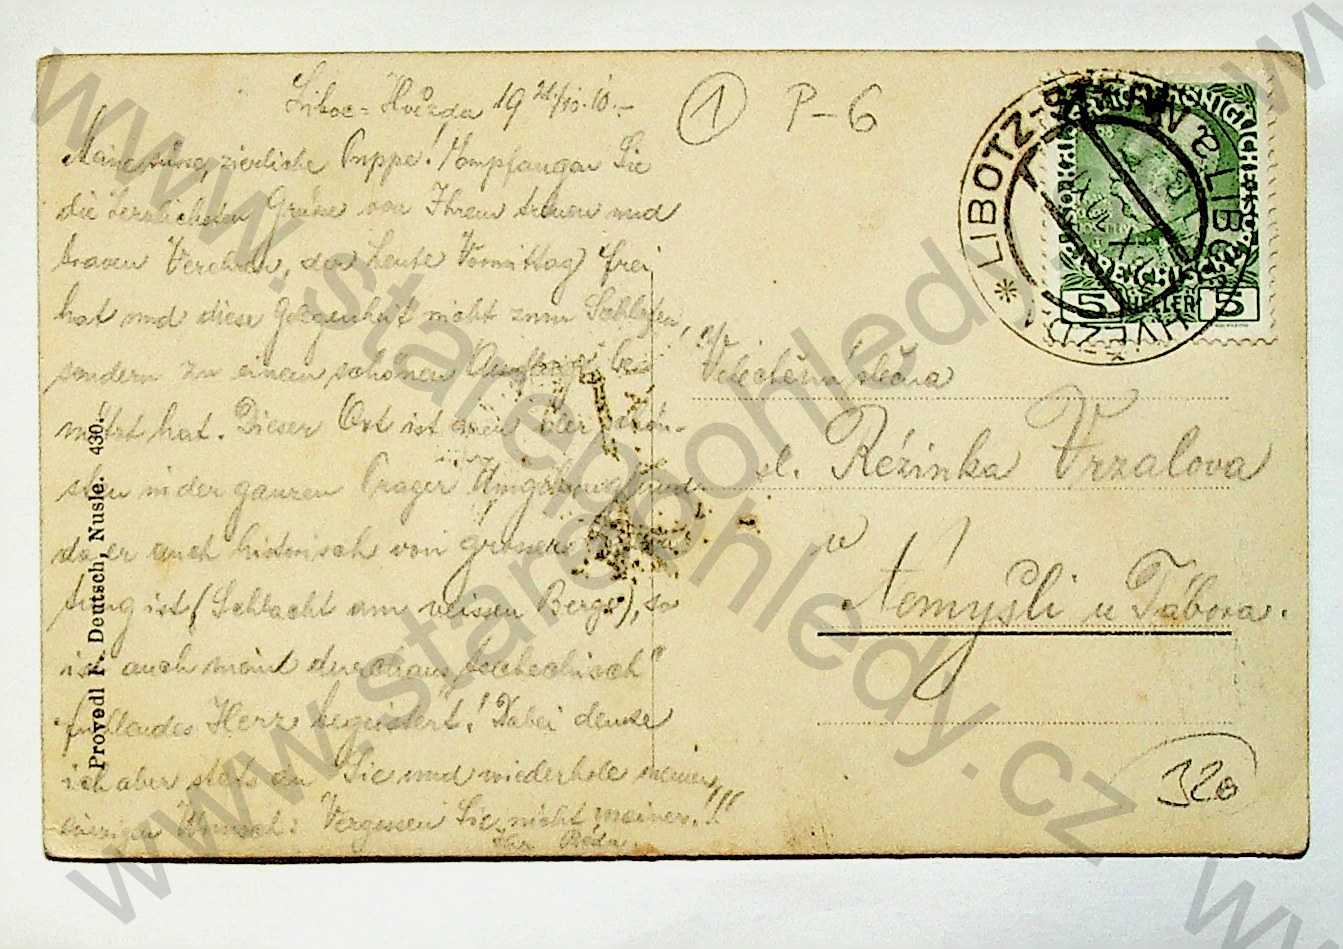 Liboc-Hvězda 19 21/IX. 10.-
① P-6
Meine süße, zierliche Puppe! Empfangen Sie
die herzlichsten Grüße von Ihrem treuen und
braven Verehrer, der heute Vormittag frei
hat und diese Gelegenheit nicht zum Schlafen,
sondern zu einem schönen Ausfluge be-
nützt hat. Dieser Ort ist einer der schön-
sten in der ganzen Prager Umgebung und
da er auch historisch von grosser
tung ist (Schlacht am weissen Berge), so
ist auch mein durchaus "tschechisch"
fühlendes Herz begeistert! Dabei denke
ich aber stets an Sie und wiederhole meinen
einzigen Wunsch: Vergessen Sie nicht meiner!!!
Ihr Béda
LIBOTZ-STERN
LIBOC-HVĚZDA
5 HELLER 5
Velectěná slečna
sl. Rézinka Vrzalova
v
Nemyšli u Tábora.
320
Provedl F. Deutsch, Nusle. 430.
www.starepohledy.cz
www.starepohledy.cz